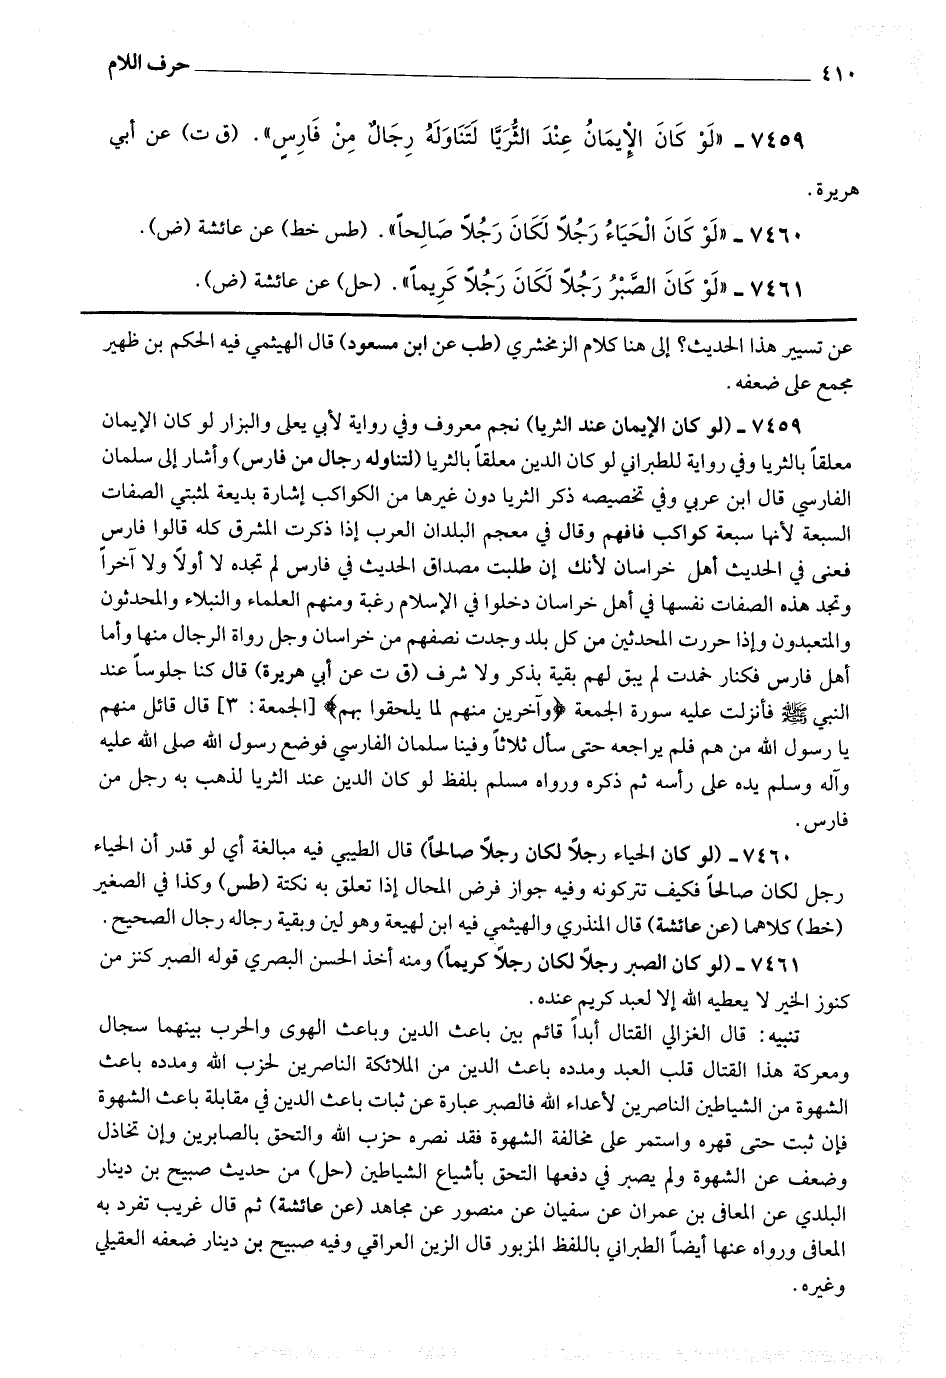 ٤١٠ حرف اللام
٧٤٥٩ ـ «لَوْ كَانَ الْإِيمَانُ عِنْدَ الثُّرَيَّا لَتَنَاوَلَهُ رِجَالٌ مِنْ فَارِسٍ». (ق ت) عن أبي
هريرة.
٧٤٦٠ ـ «لَوْ كَانَ الْحَيَاءُ رَجُلاً لَكَانَ رَجُلاً صَالِحاً». (طس خط) عن عائشة (ض).
٧٤٦١ ـ «لَوْ كَانَ الصَّبْرُ رَجُلاً لَكَانَ رَجُلاً كَرِيماً». (حل) عن عائشة (ض).
عن تسيير هذا الحديث؟ إلى هنا كلام الزمخشري (طب عن ابن مسعود) قال الهيثمي فيه الحكم بن ظهير
مجمع على ضعفه.
٧٤٥٩ ـ (لو كان الإيمان عند الثريا) نجم معروف وفي رواية لأبي يعلى والبزار لو كان الإيمان
معلقاً بالثريا وفي رواية للطبراني لو كان الدين معلقاً بالثريا (لتناوله رجال من فارس) وأشار إلى سلمان
الفارسي قال ابن عربي وفي تخصيصه ذكر الثريا دون غيرها من الكواكب إشارة بديعة لمثبتي الصفات
السبعة لأنها سبعة كواكب فافهم وقال في معجم البلدان العرب إذا ذكرت المشرق كله قالوا فارس
فعنى في الحديث أهل خراسان لأنك إن طلبت مصداق الحديث في فارس لم تجده لا أولاً ولا آخراً
وتجد هذه الصفات نفسها في أهل خراسان دخلوا في الإسلام رغبة ومنهم العلماء والنبلاء والمحدثون
والمتعبدون وإذا حررت المحدثين من كل بلد وجدت نصفهم من خراسان وجل رواة الرجال منها وأما
أهل فارس فكنار خمدت لم يبق لهم بقية بذكر ولا شرف (ق ت عن أبي هريرة) قال كنا جلوساً عند
النبي ﷺ فأنزلت عليه سورة الجمعة ﴿وآخرين منهم لما يلحقوا بهم﴾ [الجمعة: ٣] قال قائل منهم
يا رسول الله من هم فلم يراجعه حتى سأل ثلاثاً وفينا سلمان الفارسي فوضع رسول الله صلى الله عليه
وآله وسلم يده على رأسه ثم ذكره ورواه مسلم بلفظ لو كان الدين عند الثريا لذهب به رجل من
فارس.
٧٤٦٠ ـ (لو كان الحياء رجلاً لكان رجلاً صالحاً) قال الطيبي فيه مبالغة أي لو قدر أن الحياء
رجل لكان صالحاً فكيف تتركونه وفيه جواز فرض المحال إذا تعلق به نكتة (طس) وكذا في الصغير
(خط) كلاهما (عن عائشة) قال المنذري والهيثمي فيه ابن لهيعة وهو لين وبقية رجاله رجال الصحيح.
٧٤٦١ ـ (لو كان الصبر رجلاً لكان رجلاً كريماً) ومنه أخذ الحسن البصري قوله الصبر كنز من
كنوز الخير لا يعطيه الله إلا لعبد كريم عنده.
تنبيه: قال الغزالي القتال أبداً قائم بين باعث الدين وباعث الهوى والحرب بينهما سجال
ومعركة هذا القتال قلب العبد ومدده باعث الدين من الملائكة الناصرين لحزب الله ومدده باعث
الشهوة من الشياطين الناصرين لأعداء الله فالصبر عبارة عن ثبات باعث الدين في مقابلة باعث الشهوة
فإن ثبت حتى قهره واستمر على مخالفة الشهوة فقد نصره حزب الله والتحق بالصابرين وإن تخاذل
وضعف عن الشهوة ولم يصبر في دفعها التحق بأشياع الشياطين (حل) من حديث صبيح بن دينار
البلدي عن المعافى بن عمران عن سفيان عن منصور عن مجاهد (عن عائشة) ثم قال غريب تفرد به
المعافى ورواه عنها أيضاً الطبراني باللفظ المزبور قال الزين العراقي وفيه صبيح بن دينار ضعفه العقيلي
وغيره.